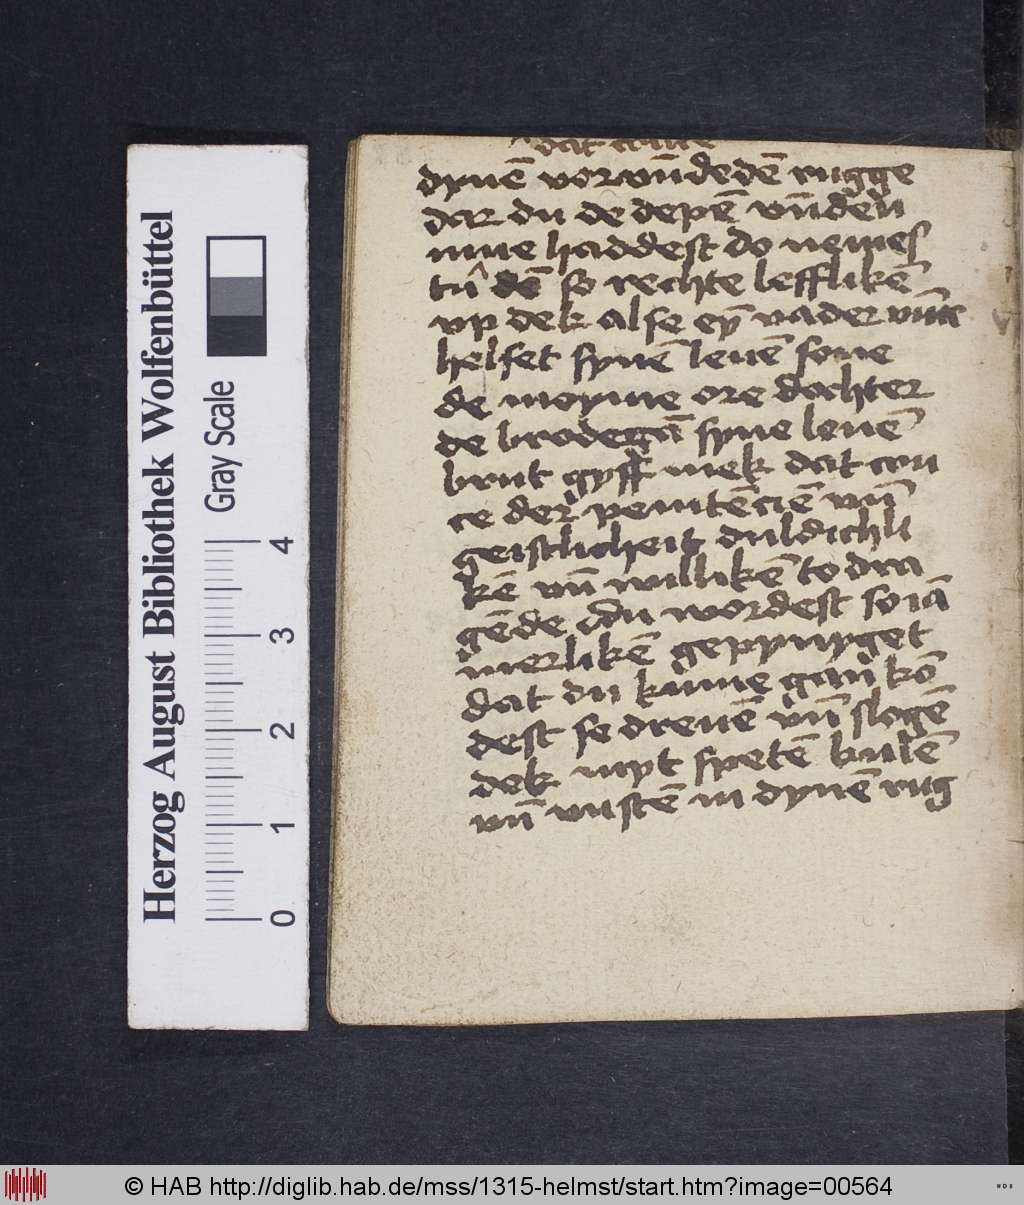 dat cruce
dynē vorvūdedē rugge
dar du de depē vūden
inne haddest do nemes
tu dē so rechte lefflikē
vp dek alse eȳ vader vm̄e
helset synē leuē sone
de moyme ore dochter
de brodegā syne leuē
brut gyff mek dat cru
ce der penitēciē vn̄
geistlicheit duldichli
kē vn̄ willikē to dra
gēde du wordest so iā
merlikē gepynyget
dat du kume gan kō
dest se dreuē vn̄ slogē
dek myt spetē kulē
vn̄ vustē in dynē rug
Herzog August Bibliothek Wolfenbüttel
Gray Scale
0 1 2 3 4
© HAB http://diglib.hab.de/mss/1315-helmst/start.htm?image=00564